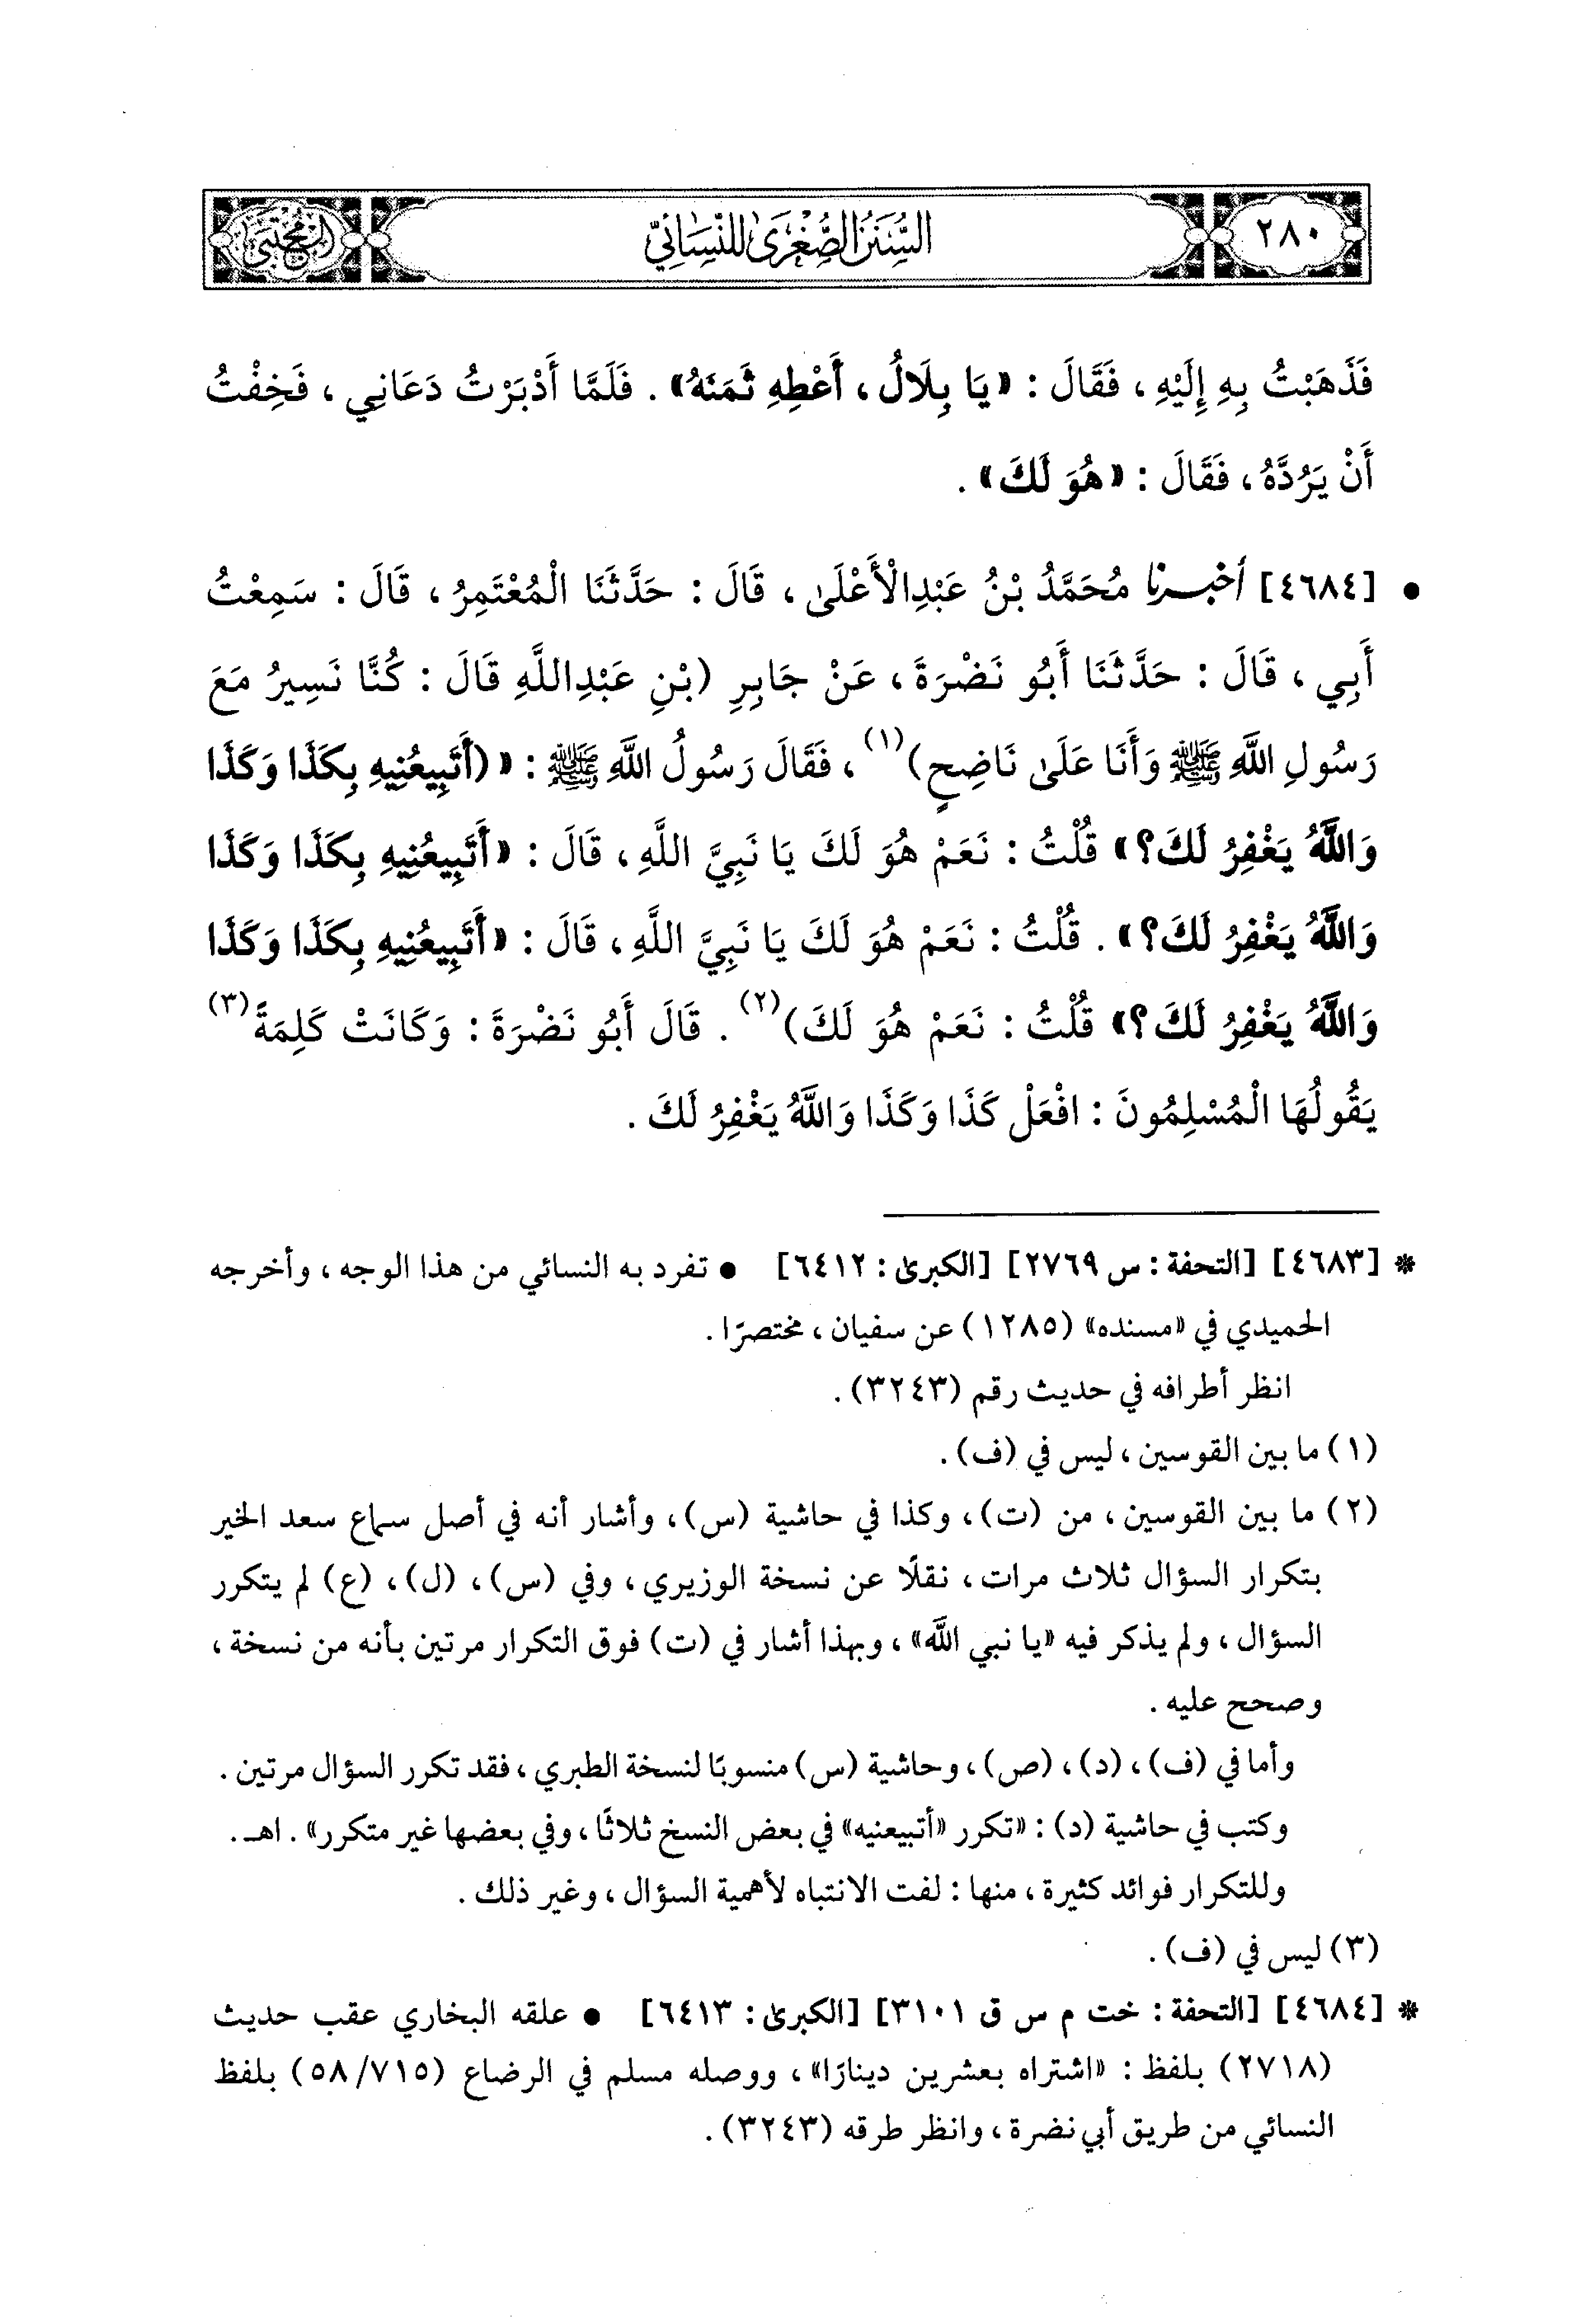 ٢٨٠
السُّنَنُ الصُّغْرَىٰ لِلنِّسَائِيِّ
المجتبى
فَذَهَبْتُ بِهِ إِلَيْهِ ، فَقَالَ : «يَا بِلَالُ ، أَعْطِهِ ثَمَنَهُ» . فَلَمَّا أَدْبَرْتُ دَعَانِي ، فَخِفْتُ
أَنْ يَرُدَّهُ ، فَقَالَ : «هُوَ لَكَ» .
• [٤٦٨٤] أخبرنا مُحَمَّدُ بْنُ عَبْدِالْأَعْلَىٰ ، قَالَ : حَدَّثَنَا الْمُعْتَمِرُ ، قَالَ : سَمِعْتُ
أَبِي ، قَالَ : حَدَّثَنَا أَبُو نَضْرَةَ ، عَنْ جَابِرِ (بْنِ عَبْدِاللَّهِ قَالَ : كُنَّا نَسِيرُ مَعَ
رَسُولِ اللَّهِ ﷺ وَأَنَا عَلَىٰ نَاضِحٍ)(١) ، فَقَالَ رَسُولُ اللَّهِ ﷺ : «(أَتَبِيعُنِيهِ بِكَذَا وَكَذَا
وَاللَّهُ يَغْفِرُ لَكَ؟» قُلْتُ : نَعَمْ هُوَ لَكَ يَا نَبِيَّ اللَّهِ ، قَالَ : «أَتَبِيعُنِيهِ بِكَذَا وَكَذَا
وَاللَّهُ يَغْفِرُ لَكَ؟» . قُلْتُ : نَعَمْ هُوَ لَكَ يَا نَبِيَّ اللَّهِ ، قَالَ : «أَتَبِيعُنِيهِ بِكَذَا وَكَذَا
وَاللَّهُ يَغْفِرُ لَكَ؟» قُلْتُ : نَعَمْ هُوَ لَكَ)(٢) . قَالَ أَبُو نَضْرَةَ : وَكَانَتْ كَلِمَةً(٣)
يَقُولُهَا الْمُسْلِمُونَ : افْعَلْ كَذَا وَكَذَا وَاللَّهُ يَغْفِرُ لَكَ .
* [٤٦٨٣] [التحفة : س ٢٧٦٩] [الكبرىٰ : ٦٤١٢] • تفرد به النسائي من هذا الوجه ، وأخرجه
الحميدي في «مسنده» (١٢٨٥) عن سفيان ، مختصرًا .
انظر أطرافه في حديث رقم (٣٢٤٣) .
(١) ما بين القوسين ، ليس في (ف) .
(٢) ما بين القوسين ، من (ت) ، وكذا في حاشية (س) ، وأشار أنه في أصل سماع سعد الخير
بتكرار السؤال ثلاث مرات ، نقلًا عن نسخة الوزيري ، وفي (س) ، (ل) ، (ع) لم يتكرر
السؤال ، ولم يذكر فيه «يا نبي الله» ، وبهذا أشار في (ت) فوق التكرار مرتين بأنه من نسخة ،
وصحح عليه .
وأما في (ف) ، (د) ، (ص) ، وحاشية (س) منسوبًا لنسخة الطبري ، فقد تكرر السؤال مرتين .
وكتب في حاشية (د) : «تكرر «أتبيعنيه» في بعض النسخ ثلاثًا ، وفي بعضها غير متكرر» . اهـ .
وللتكرار فوائد كثيرة ، منها : لفت الانتباه لأهمية السؤال ، وغير ذلك .
(٣) ليس في (ف) .
* [٤٦٨٤] [التحفة : خت م س ق ٣١٠١] [الكبرىٰ : ٦٤١٣] • علقه البخاري عقب حديث
(٢٧١٨) بلفظ : «اشتراه بعشرين دينارًا» ، ووصله مسلم في الرضاع (٥٨/٧١٥) بلفظ
النسائي من طريق أبي نضرة ، وانظر طرقه (٣٢٤٣) .